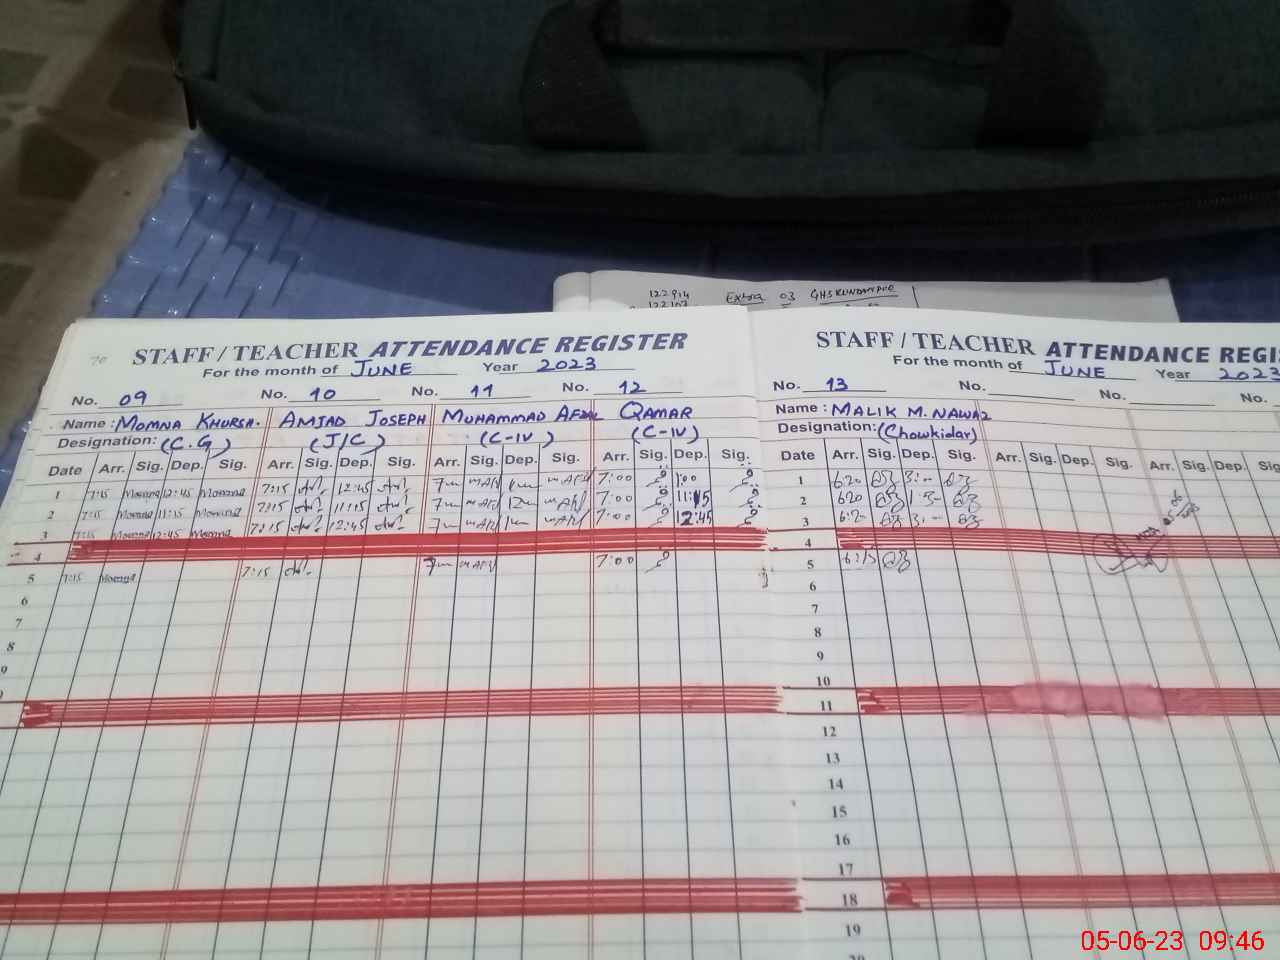 122914
Extra 03 GHSKUNDANPUR
70
STAFF / TEACHER ATTENDANCE REGISTER
For the month of JUNE Year 2023
No. 09 No. 10 No. 11 No. 12
Name : MOMNA KHURSH. AMJAD JOSEPH MUHAMMAD AFZAL QAMAR
Designation: (C.G) (J/C) (C-IV) (C-IV)
Date Arr. Sig. Dep. Sig. Arr. Sig. Dep. Sig. Arr. Sig. Dep. Sig. Arr. Sig. Dep. Sig.
1 7:15 Momna 12:45 Momna 7:15 12:45 7:00 1:00
2 7:15 Momna 11:15 Momna 7:15 11:15 7:00 11:15
3 7:15 Momna 12:45 Momna 7:15 12:45 7:00 12:45
4
5 7:15 Momna 7:15 7:00
6
7
8
9
STAFF / TEACHER ATTENDANCE REGI
For the month of JUNE Year 2023
No. 13 No. No. No.
Name : MALIK M. NAWAZ
Designation: (Chowkidar)
Date Arr. Sig. Dep. Sig. Arr. Sig. Dep. Sig. Arr. Sig. Dep. Sig.
1 6:20
2 620
3
4
5 6:15
6
7
8
9
10
11
12
13
14
15
16
17
18
19
20
05-06-23 09:46